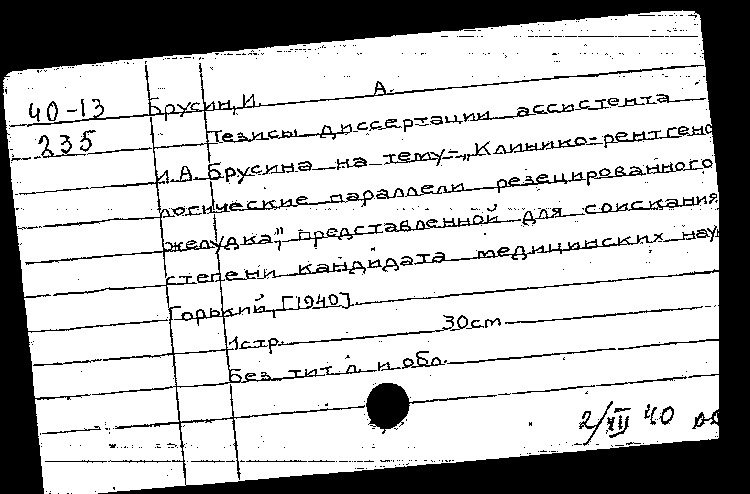 40-13 Брусин, И. А.
235 Тезисы диссертации ассистента
И.А. Брусина на тему-„Клинико-рентгено
логические параллели резецированного
желудка", представленной для соискания
степени кандидата медицинских нау
Горький, [1940]
1стр. 30cm
Без тит. л. и обл.
2/XII 40